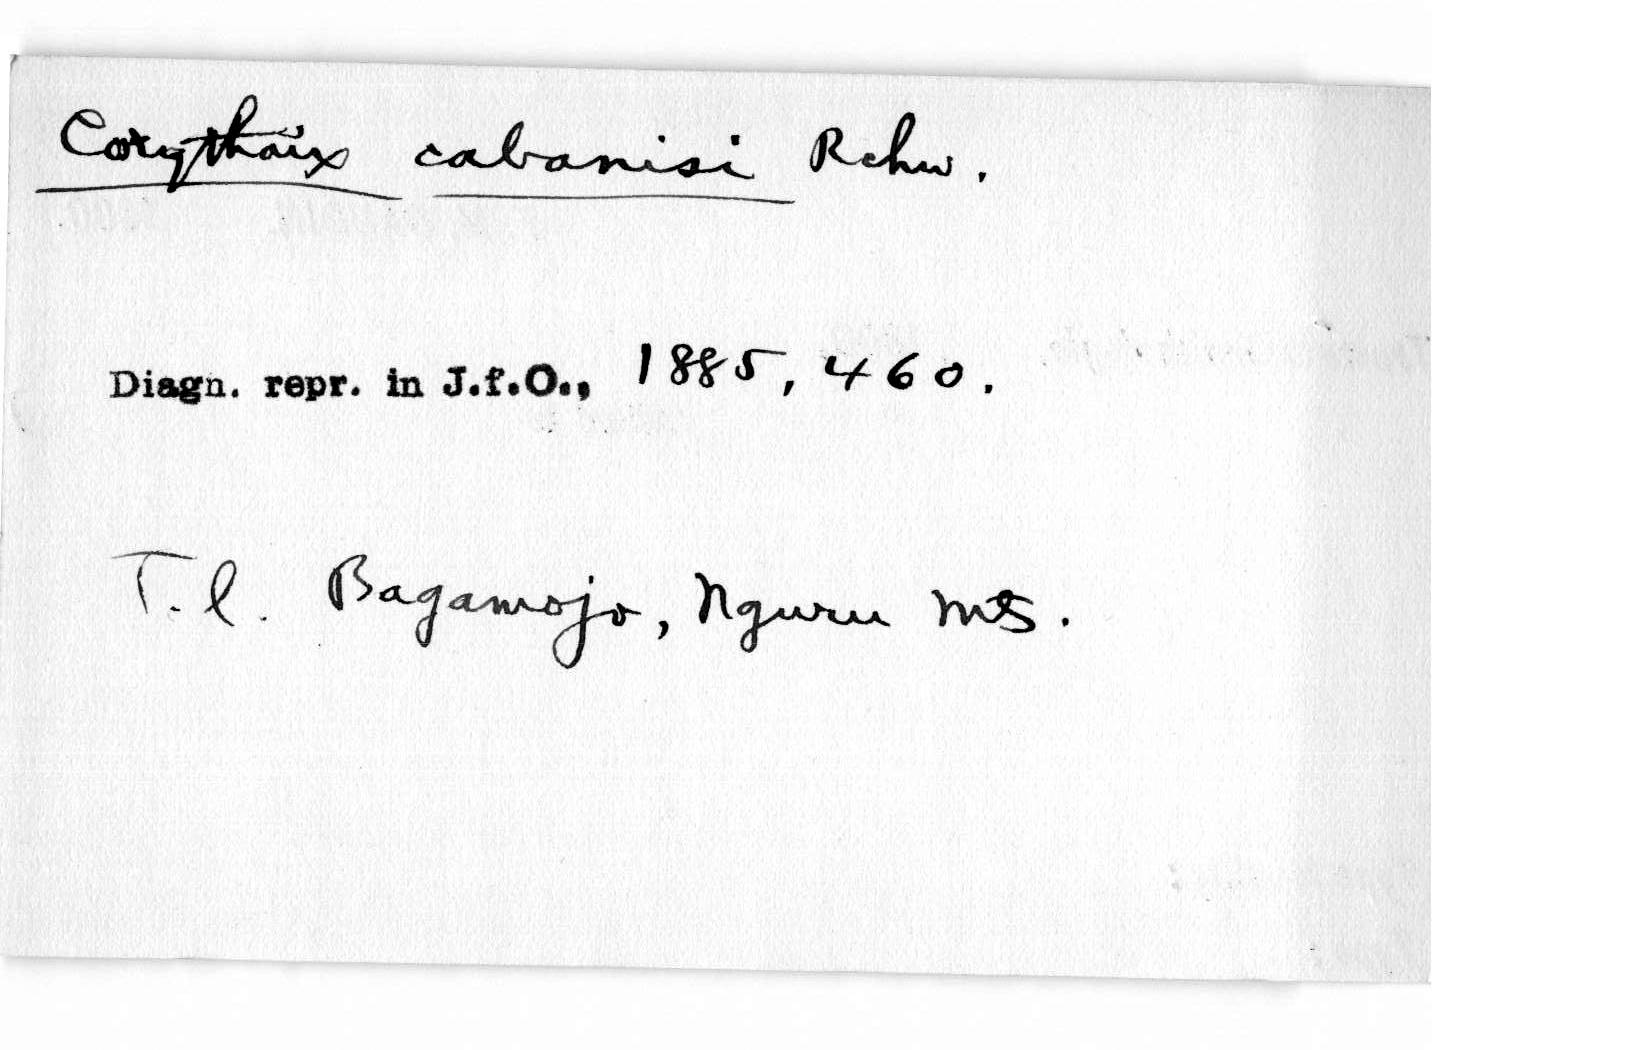 Corythaix cabanisi Rchw.
Diagn. repr. in J.f.O., 1885, 460.
T.l. Bagamojo, Nguru Mts.